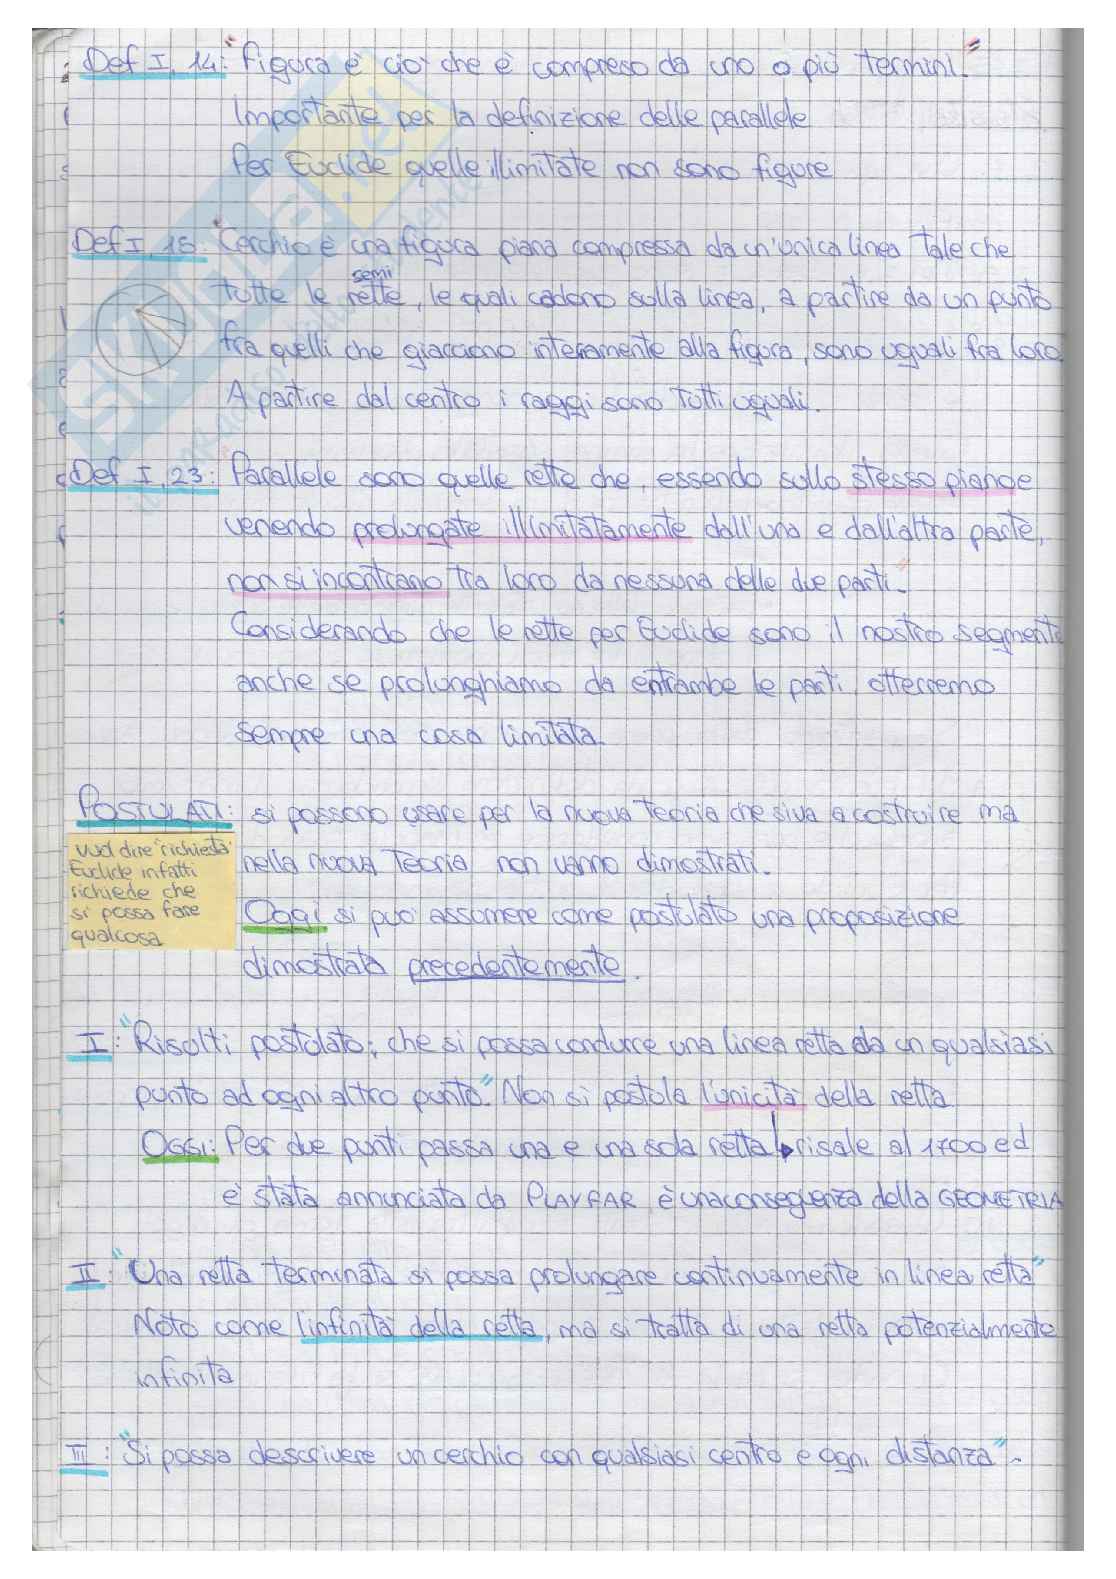 Def I, 14: "figura è ciò che è compreso da uno o più termini."
Importante per la definizione delle parallele
Per Euclide quelle illimitate non sono figure
Def I, 15: "Cerchio è una figura piana compressa da un'unica linea tale che
semi
tutte le rette, le quali cadono sulla linea, a partire da un punto
fra quelli che giacciono internamente alla figura, sono uguali fra loro
A partire dal centro i raggi sono tutti uguali.
Def I, 23: Parallele sono quelle rette che, essendo sullo stesso piano e
venendo prolungate illimitatamente dall'una e dall'altra parte,
non si incontrano tra loro da nessuna delle due parti."
Considerando che le rette per Euclide sono il nostro segmento
anche se prolunghiamo da entrambe le parti otterremo
sempre una cosa limitata.
POSTULATI: si possono usare per la nuova teoria che si va a costruire ma
vuol dire "richiesta"
nella nuova teoria non vanno dimostrati.
Euclide infatti
richiede che
si possa fare
qualcosa
Oggi si può assumere come postulato una proposizione
dimostrata precedentemente.
I: "Risulti postulato: che si possa condurre una linea retta da un qualsiasi
punto ad ogni altro punto." Non si postula l'unicità della retta.
OGGI: Per due punti passa una e una sola retta risale al 1700 ed
è stata annunciata da PLAYFAR è una conseguenza della GEOMETRIA
II: "Una retta terminata si possa prolungare continuamente in linea retta"
Noto come l'infinità della retta, ma si tratta di una retta potenzialmente
infinita
III: "Si possa descrivere un cerchio con qualsiasi centro e ogni distanza".
SKUOLA.net